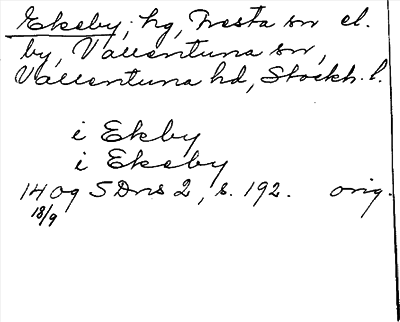 Ekeby, hg, Fresta sn el.
by, Vallentuna sn,
Vallentuna hd, Stockh. l.
i Ekby
i Ekeby
1409 SDns 2, s. 192. orig.
18/9